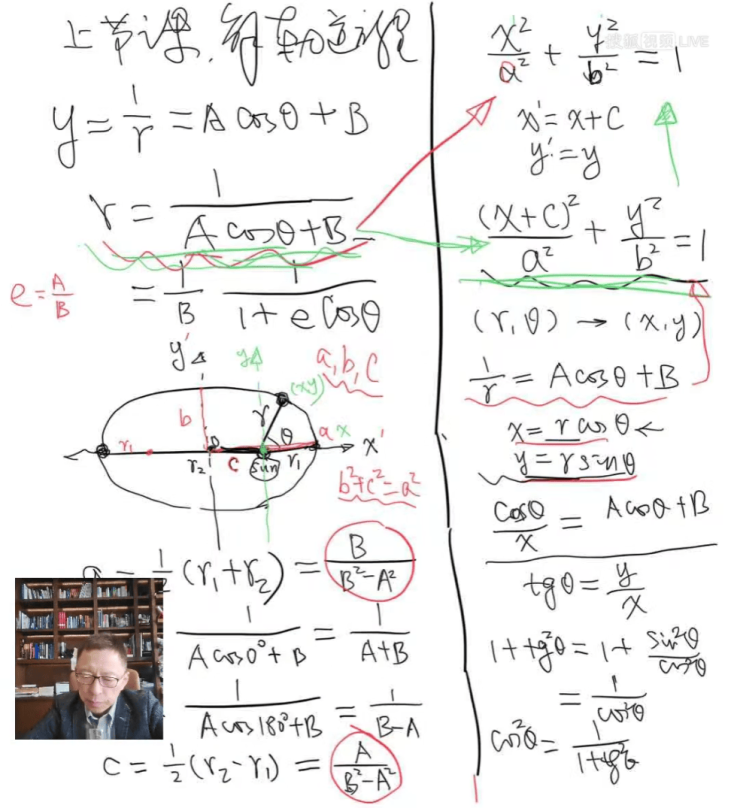 上节课,行星轨道方程
y = 1/r = A cosθ + B
r = 1/(A cosθ + B)
e = A/B
= 1/B 1/(1 + e cosθ)
y'
y
a, b, c
(x y)
b
r
θ
a
x
x'
r₁
o
r₂
c
sun
r₁
b² + c² = a²
= 1/2 (r₁ + r₂) = B/(B² - A²)
1/(A cos0° + B) = 1/(A + B)
1/(A cos180° + B) = 1/(B - A)
c = 1/2 (r₂ - r₁) = A/(B² - A²)
搜狐视频 LIVE
x²/a² + y²/b² = 1
x' = x + C
y' = y
(x + C)²/a² + y²/b² = 1
(r, θ) → (x, y)
1/r = A cosθ + B
x = r cosθ ←
y = r sinθ
cosθ/x = A cosθ + B
tgθ = y/x
1 + tg²θ = 1 + sin²θ/cos²θ
= 1/cos²θ
cos²θ = 1/(1 + tg²θ)